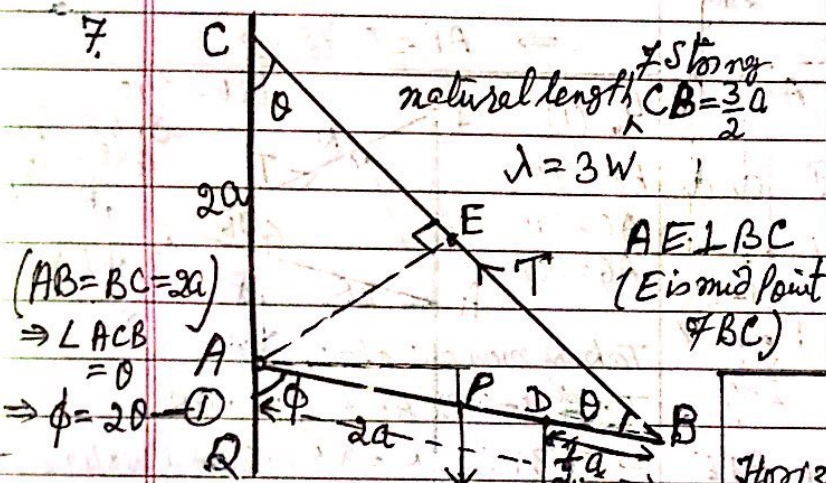 7.
C
θ
natural length of string CB = 3/2 a
λ = 3W
2a
E
T
AE ⊥ BC
(E is mid point of BC)
(AB = BC = 2a)
⇒ ∠ACB = θ
⇒ φ = 2θ — ①
A
φ
P
D
θ
B
2a
a
Q
Horiz